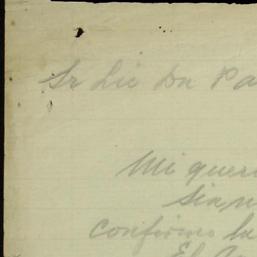 Sr Lic Dn Pa
Mi queri
sin
confirmo la
El